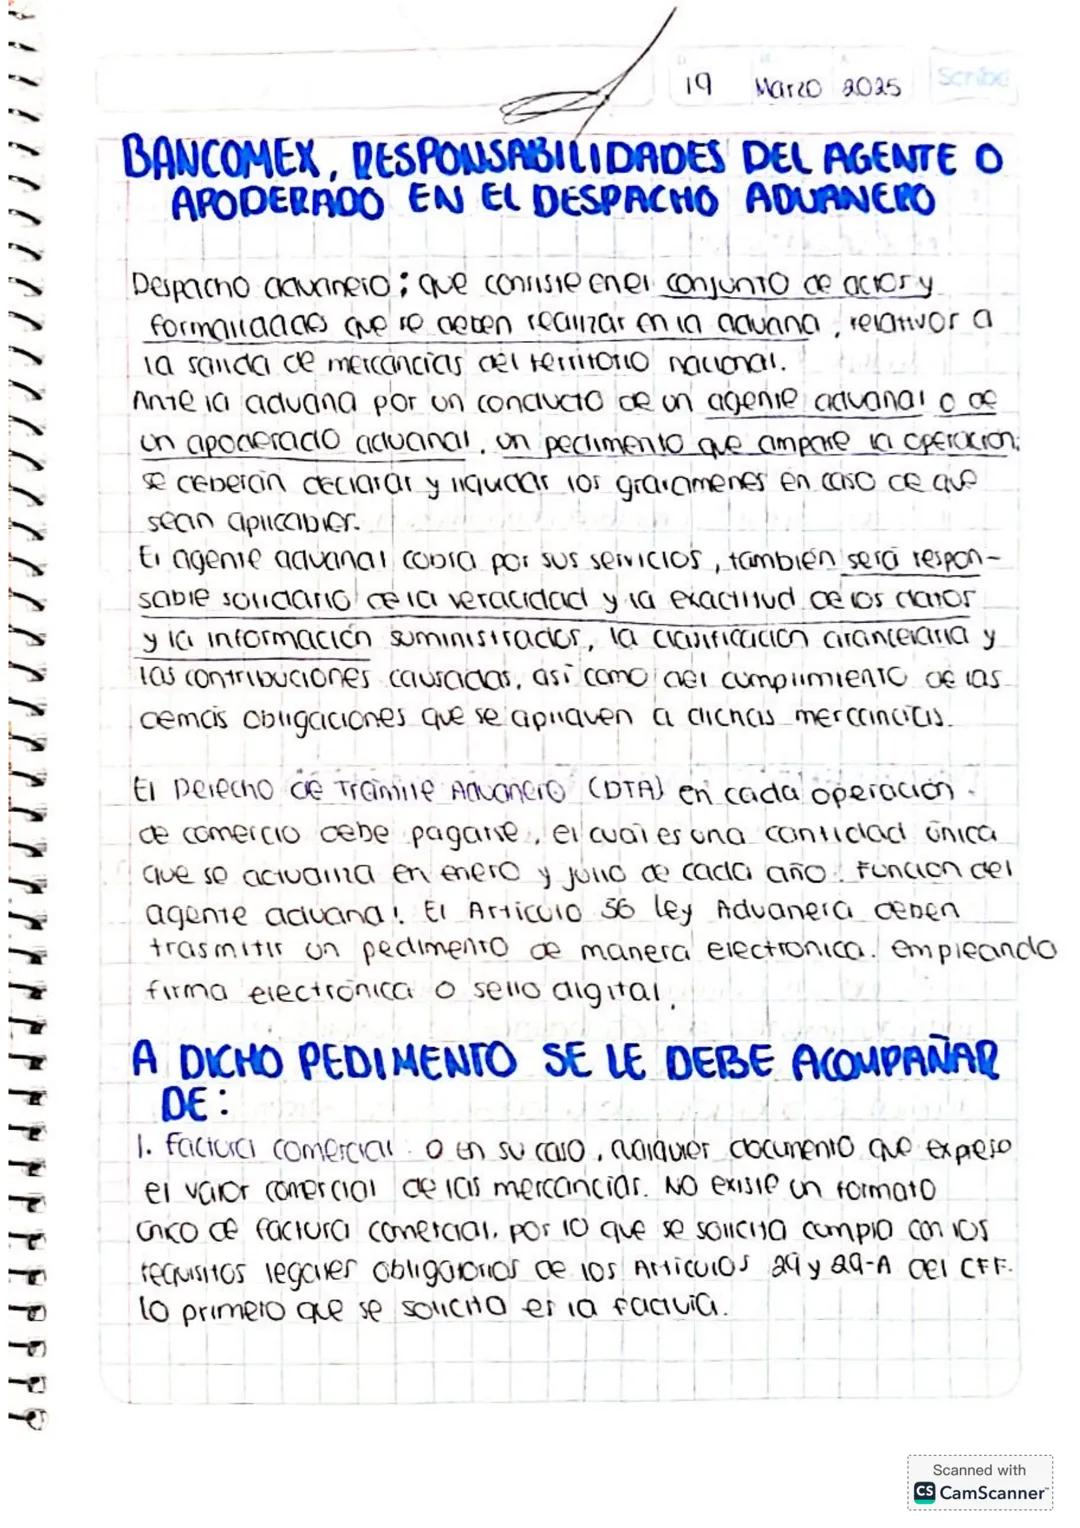 19 Marzo 2025 Scribe
BANCOMEX, RESPONSABILIDADES DEL AGENTE O
APODERADO EN EL DESPACHO ADUANERO
Despacho aduanero; que consiste en el conjunto de actos y
formalidades que se deben realizar en la aduana, relativos a
la salida de mercancías del territorio nacional.
Ante la aduana por un conducto de un agente aduanal o de
un apoderado aduanal, un pedimento que ampare la operación,
se deberán declarar y liquidar los gravamenes en caso de que
sean aplicables.
El agente aduanal cobra por sus servicios, también será respon-
sable solidario de la veracidad y la exactitud de los datos
y la información suministrados, la clasificación arancelaria y
las contribuciones causadas, así como del cumplimiento de las
demás obligaciones que se apliquen a dichas mercancías.
El Derecho de Trámite Aduanero (DTA) en cada operación
de comercio debe pagarse, el cual es una cantidad única
que se actualiza en enero y julio de cada año. Función del
agente aduanal. El Artículo 36 ley Aduanera deben
trasmitir un pedimento de manera electronica. empleando
firma electrónica o sello digital.
A DICHO PEDIMENTO SE LE DEBE ACOMPAÑAR
DE:
1. Factura comercial o en su caso, cualquier documento que exprese
el valor comercial de las mercancías. No existe un formato
único de factura comercial, por lo que se solicita cumpla con los
requisitos legales obligatorios de los Artículos 29 y 29-A del CFF.
lo primero que se solicita es la factura.
Scanned with
CS CamScanner